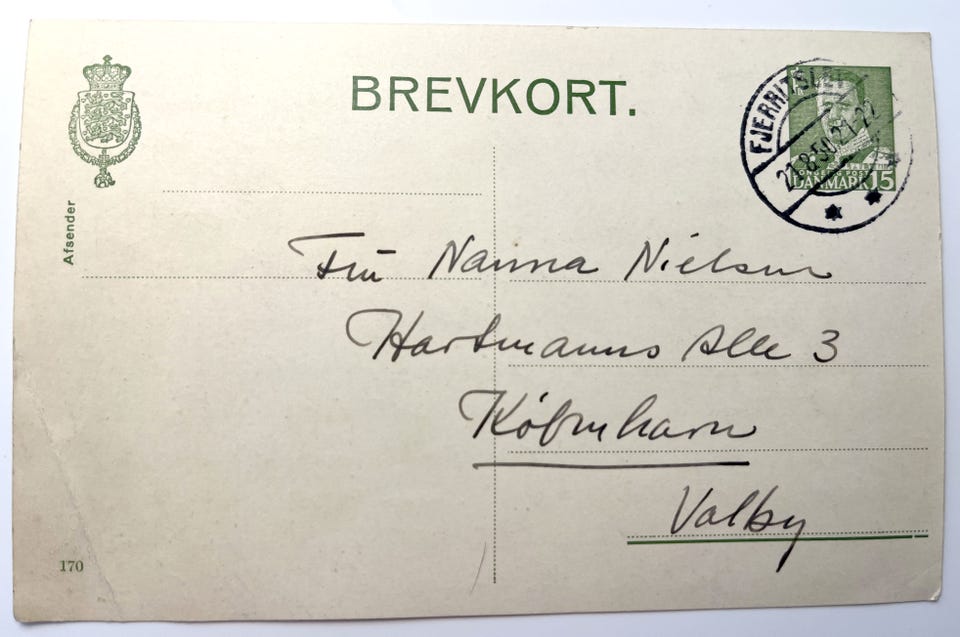 BREVKORT.
FJERRITSLEV
21-22
DANMARK 15
Afsender
Fru Nanna Nielsen
Hartmanns Alle 3
København
Valby
170